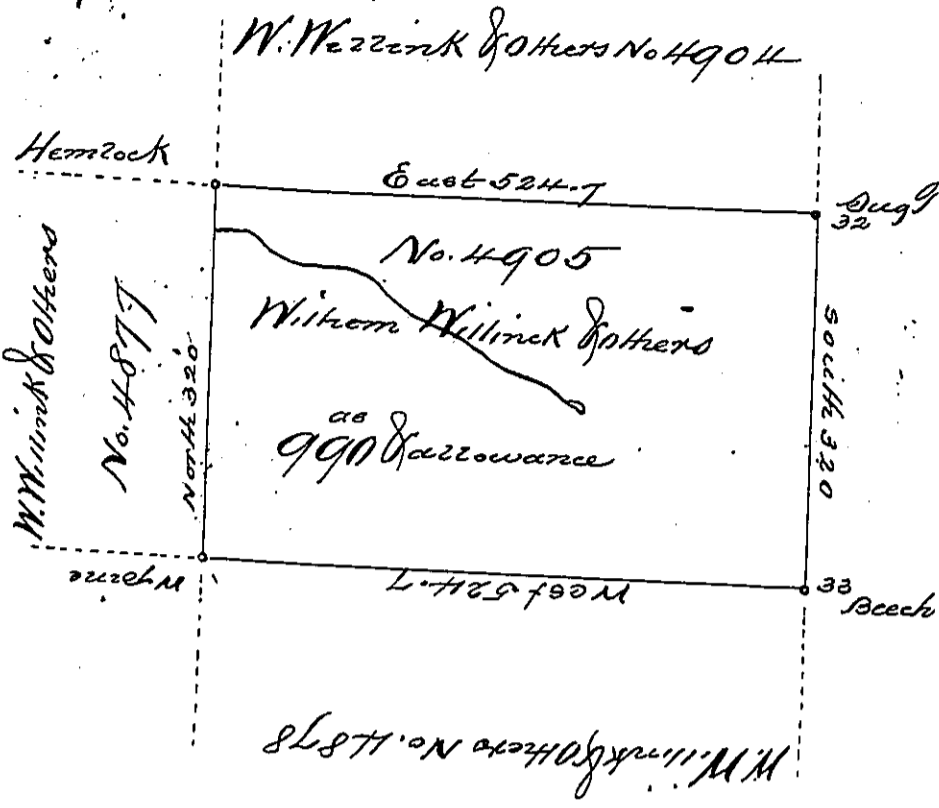 W. Willink & Others No 4904
Hemlock
East 524.7
Sug
32
No. 4905
Wilhem Willinck & others
as
990 & allowance
W. Willink & Others
No. 4877
North 320
South 320
West 524.7
W pine
33
Beech
W. Willink & Others No. 4878